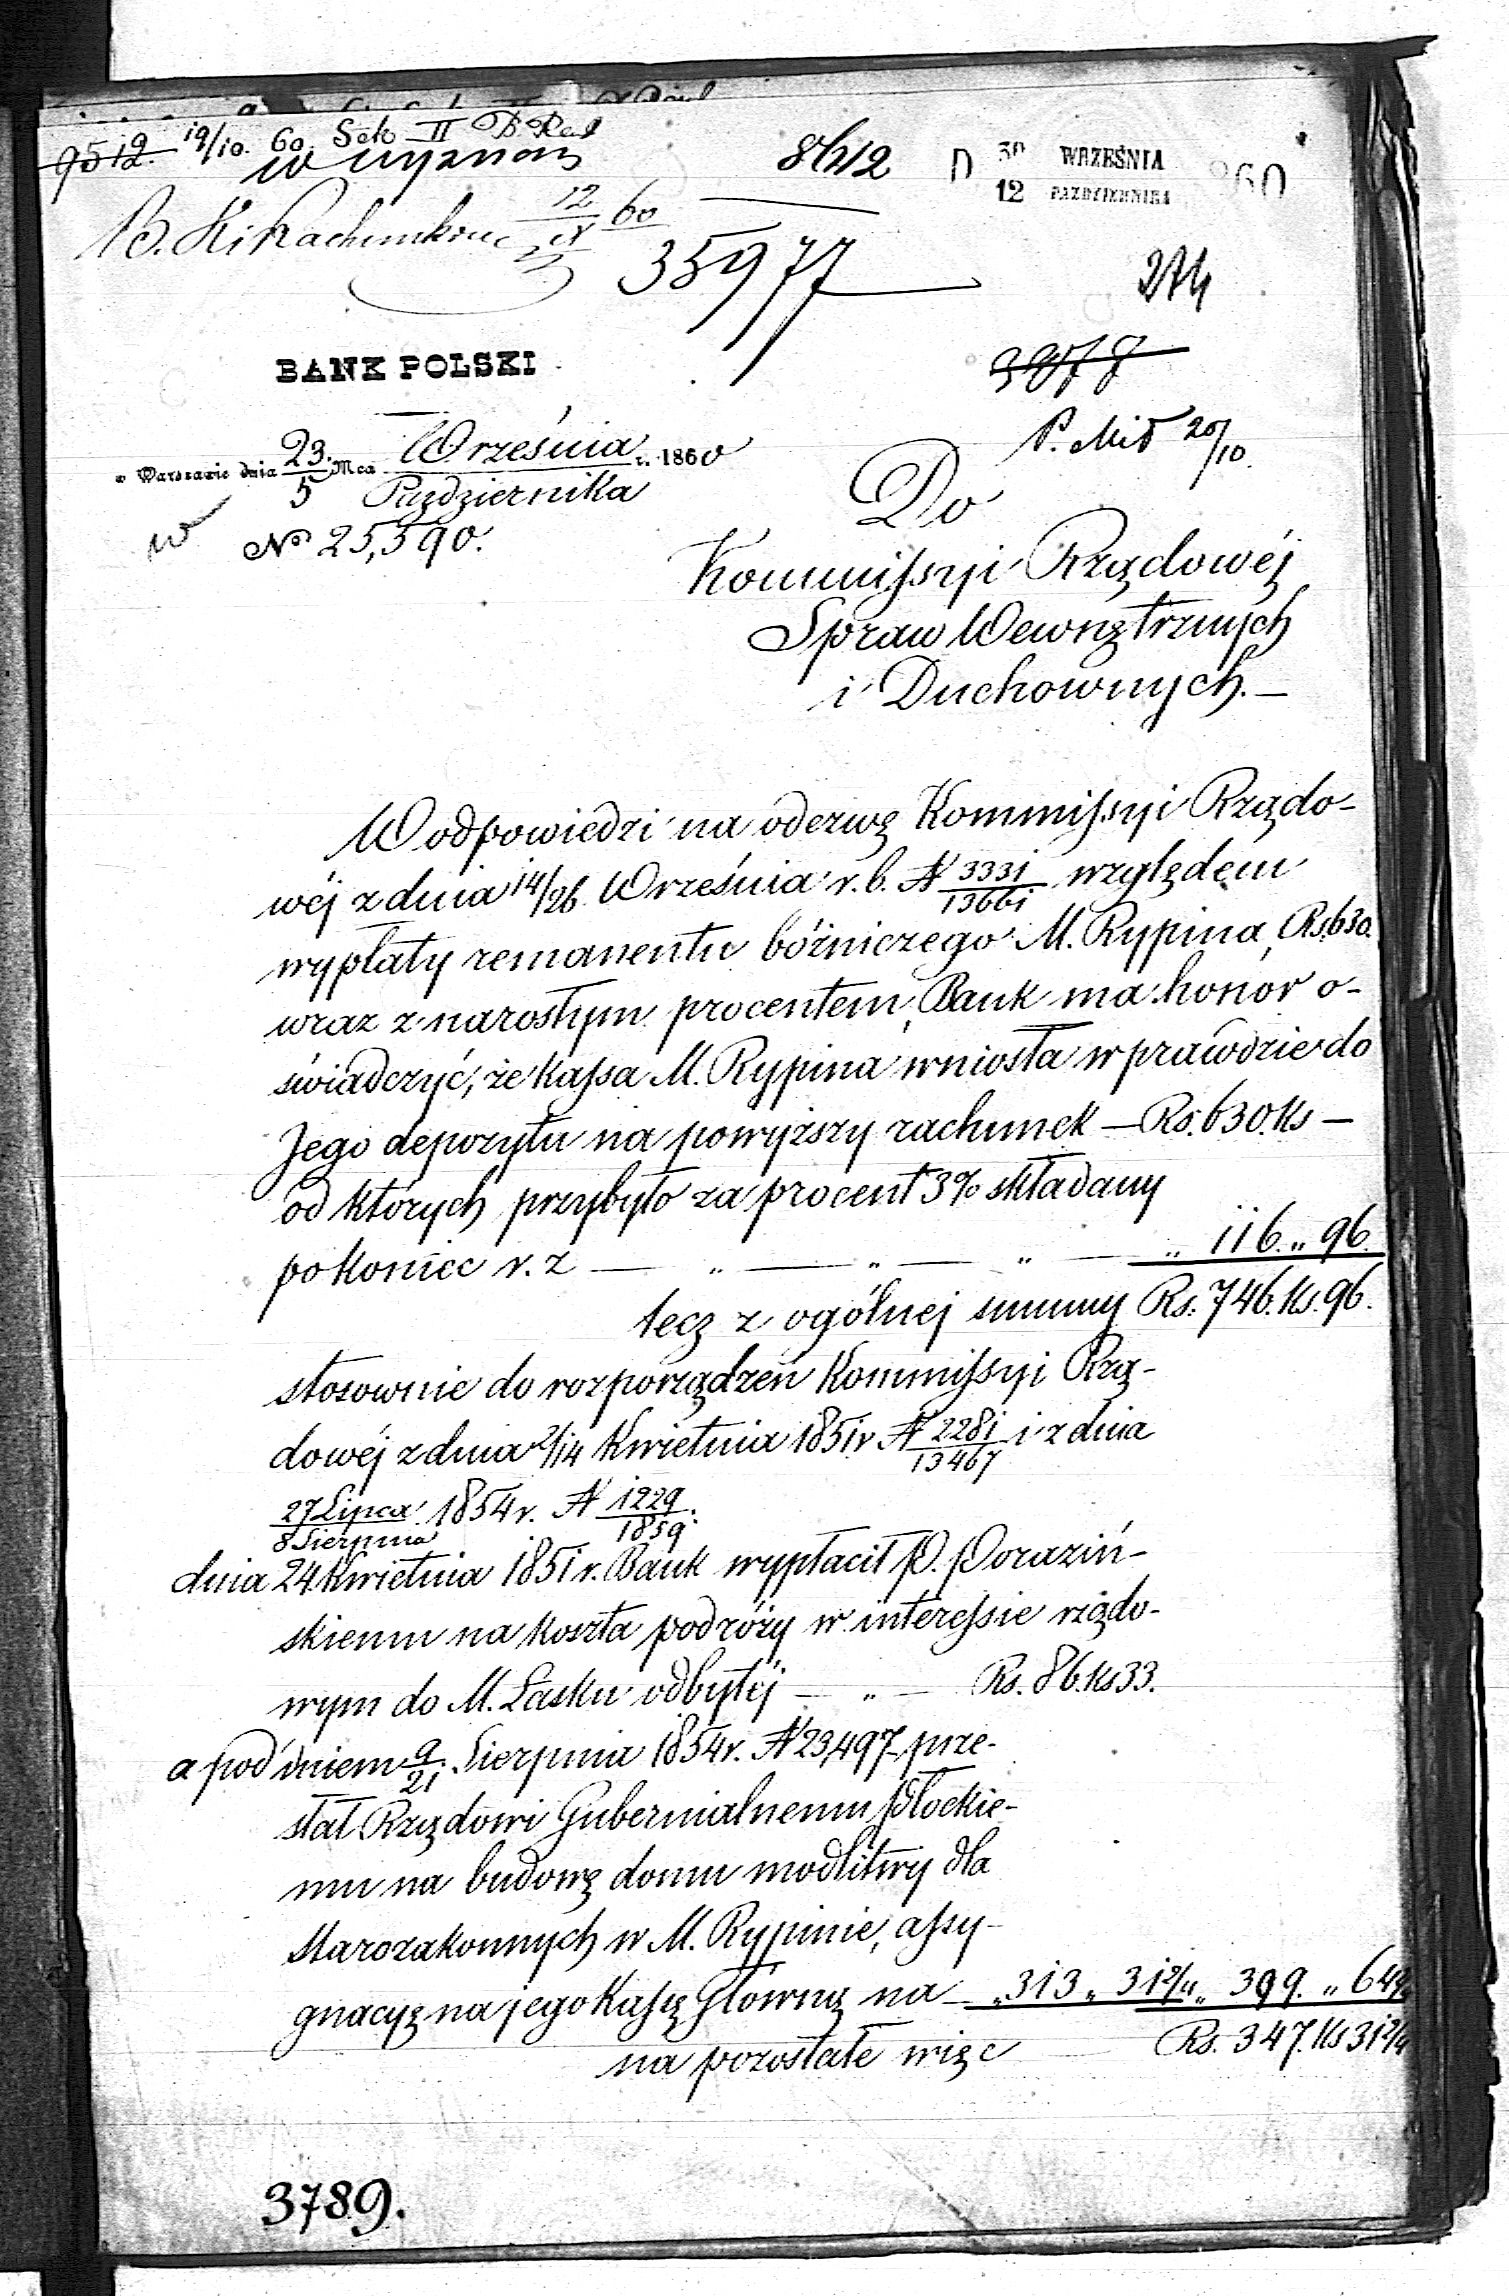 9512. 19/10. 60. Sek II
w wyznań
8612
D 30 WRZEŚNIA 860
12 PAŹDZIERNIKA
12 60
35977
274
BANK POLSKI
3077
P. Mit 20/10.
w Warszawie dnia 23. Mca Września r. 1860
5 Października
No 25,590.
Do
Kommissyi Rządowéj
Spraw Wewnętrznych
i Duchownych. —
W odpowiedzi na odezwę Kommissyi Rządo-
wéj z dnia 14/26 Września r. b. N 3331/13661 względem
wypłaty remanentu bóżniczego M. Rypina, Rs. 630.
wraz z narosłym procentem, Bank ma honor o-
świadczyć, że Kassa M. Rypina wniosła wprawdzie do
Jego depozytu na powyższy rachunek — Rs. 630. Ks —
od których przybyło za procent 3% składany
po koniec r. z — „ — „ — „ — „ 116. „ 96.
lecz z ogólnej summy Rs. 746. Ks. 96.
stosownie do rozporządzeń Kommissyi Rzą-
dowéj z dnia 2/14 Kwietnia 1851 r N 2281/13467 i z dnia
27 Lipca/8 Sierpnia 1854 r. N 1229/1859.
dnia 24 Kwietnia 1851 r. Bank wypłacił P. Poraziń-
skiemu na koszta podróży w interessie rządo-
wym do M. Łasku odbytéj — „ — Rs. 86. Ks 33.
a pod dniem 9/21 Sierpnia 1854 r. N 23,497 prze-
słał Rządowi Gubernialnemu Płockie-
mu na budowę domu modlitwy dla
Starozakonnych w M. Rypinie, assy-
gnacyę na jego Kassę Główną na — „ 313 „ 31 2/4 „ 399. „ 64
na pozostałe więc Rs. 347. Ks 31 2/4
3789.